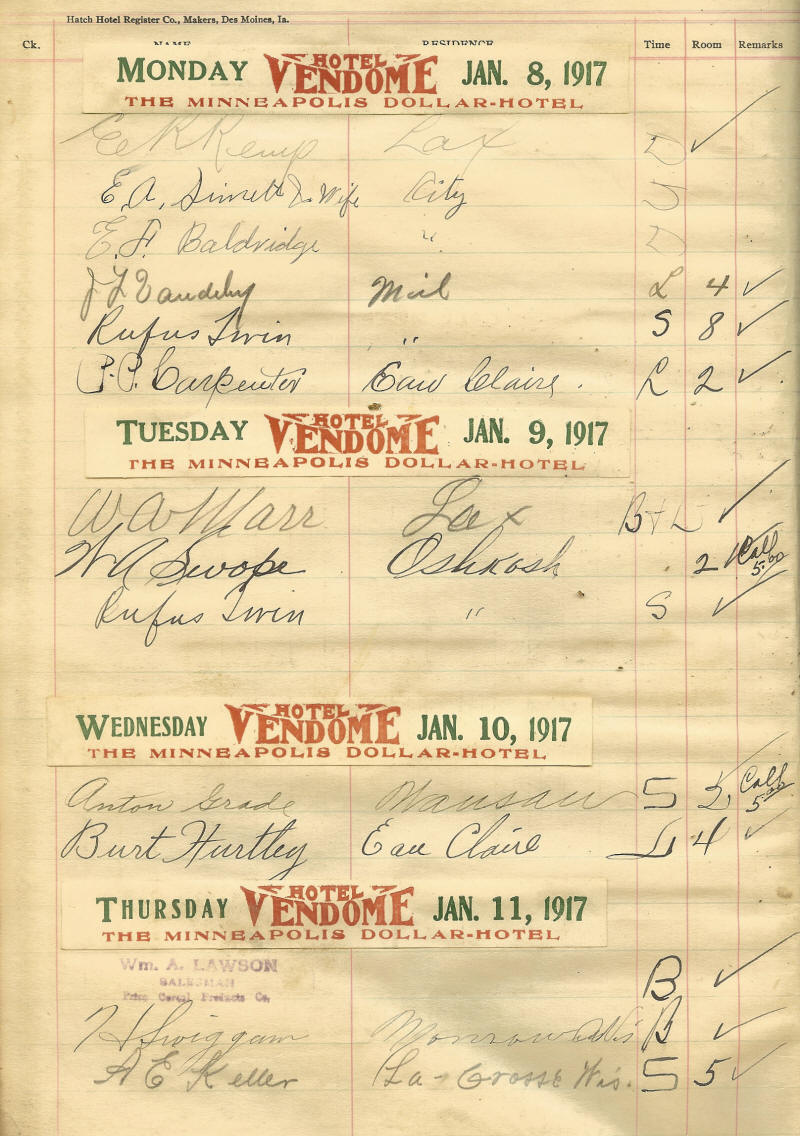 Hatch Hotel Register Co., Makers, Des Moines, Ia.
Ck. NAME RESIDENCE Time Room Remarks
MONDAY HOTEL VENDOME JAN. 8, 1917
THE MINNEAPOLIS DOLLAR-HOTEL
E K Kemp Lax D ✓
E. A. & Wife City
E. F. Baldridge "
J L Mil L 4 ✓
Rufus Irvin " S 8 ✓
P. P. Carpenter Eau Claire. L 2 ✓
TUESDAY HOTEL VENDOME JAN. 9, 1917
THE MINNEAPOLIS DOLLAR-HOTEL
W A Marr Lax B + L ✓
W A Swope Oshkosh 2 ✓ Call 5.00
Rufus Irvin " S ✓
WEDNESDAY HOTEL VENDOME JAN. 10, 1917
THE MINNEAPOLIS DOLLAR-HOTEL
Anton Grade Wausau S 2 ✓ Call 5.00
Burt Hurtley Eau Claire L 4 ✓
THURSDAY HOTEL VENDOME JAN. 11, 1917
THE MINNEAPOLIS DOLLAR-HOTEL
Wm. A. LAWSON B ✓
SALESMAN
Price Cereal Products Co.
H Swiggam Monroe Wis B ✓
A E Keller La-Crosse Wis. S 5 ✓